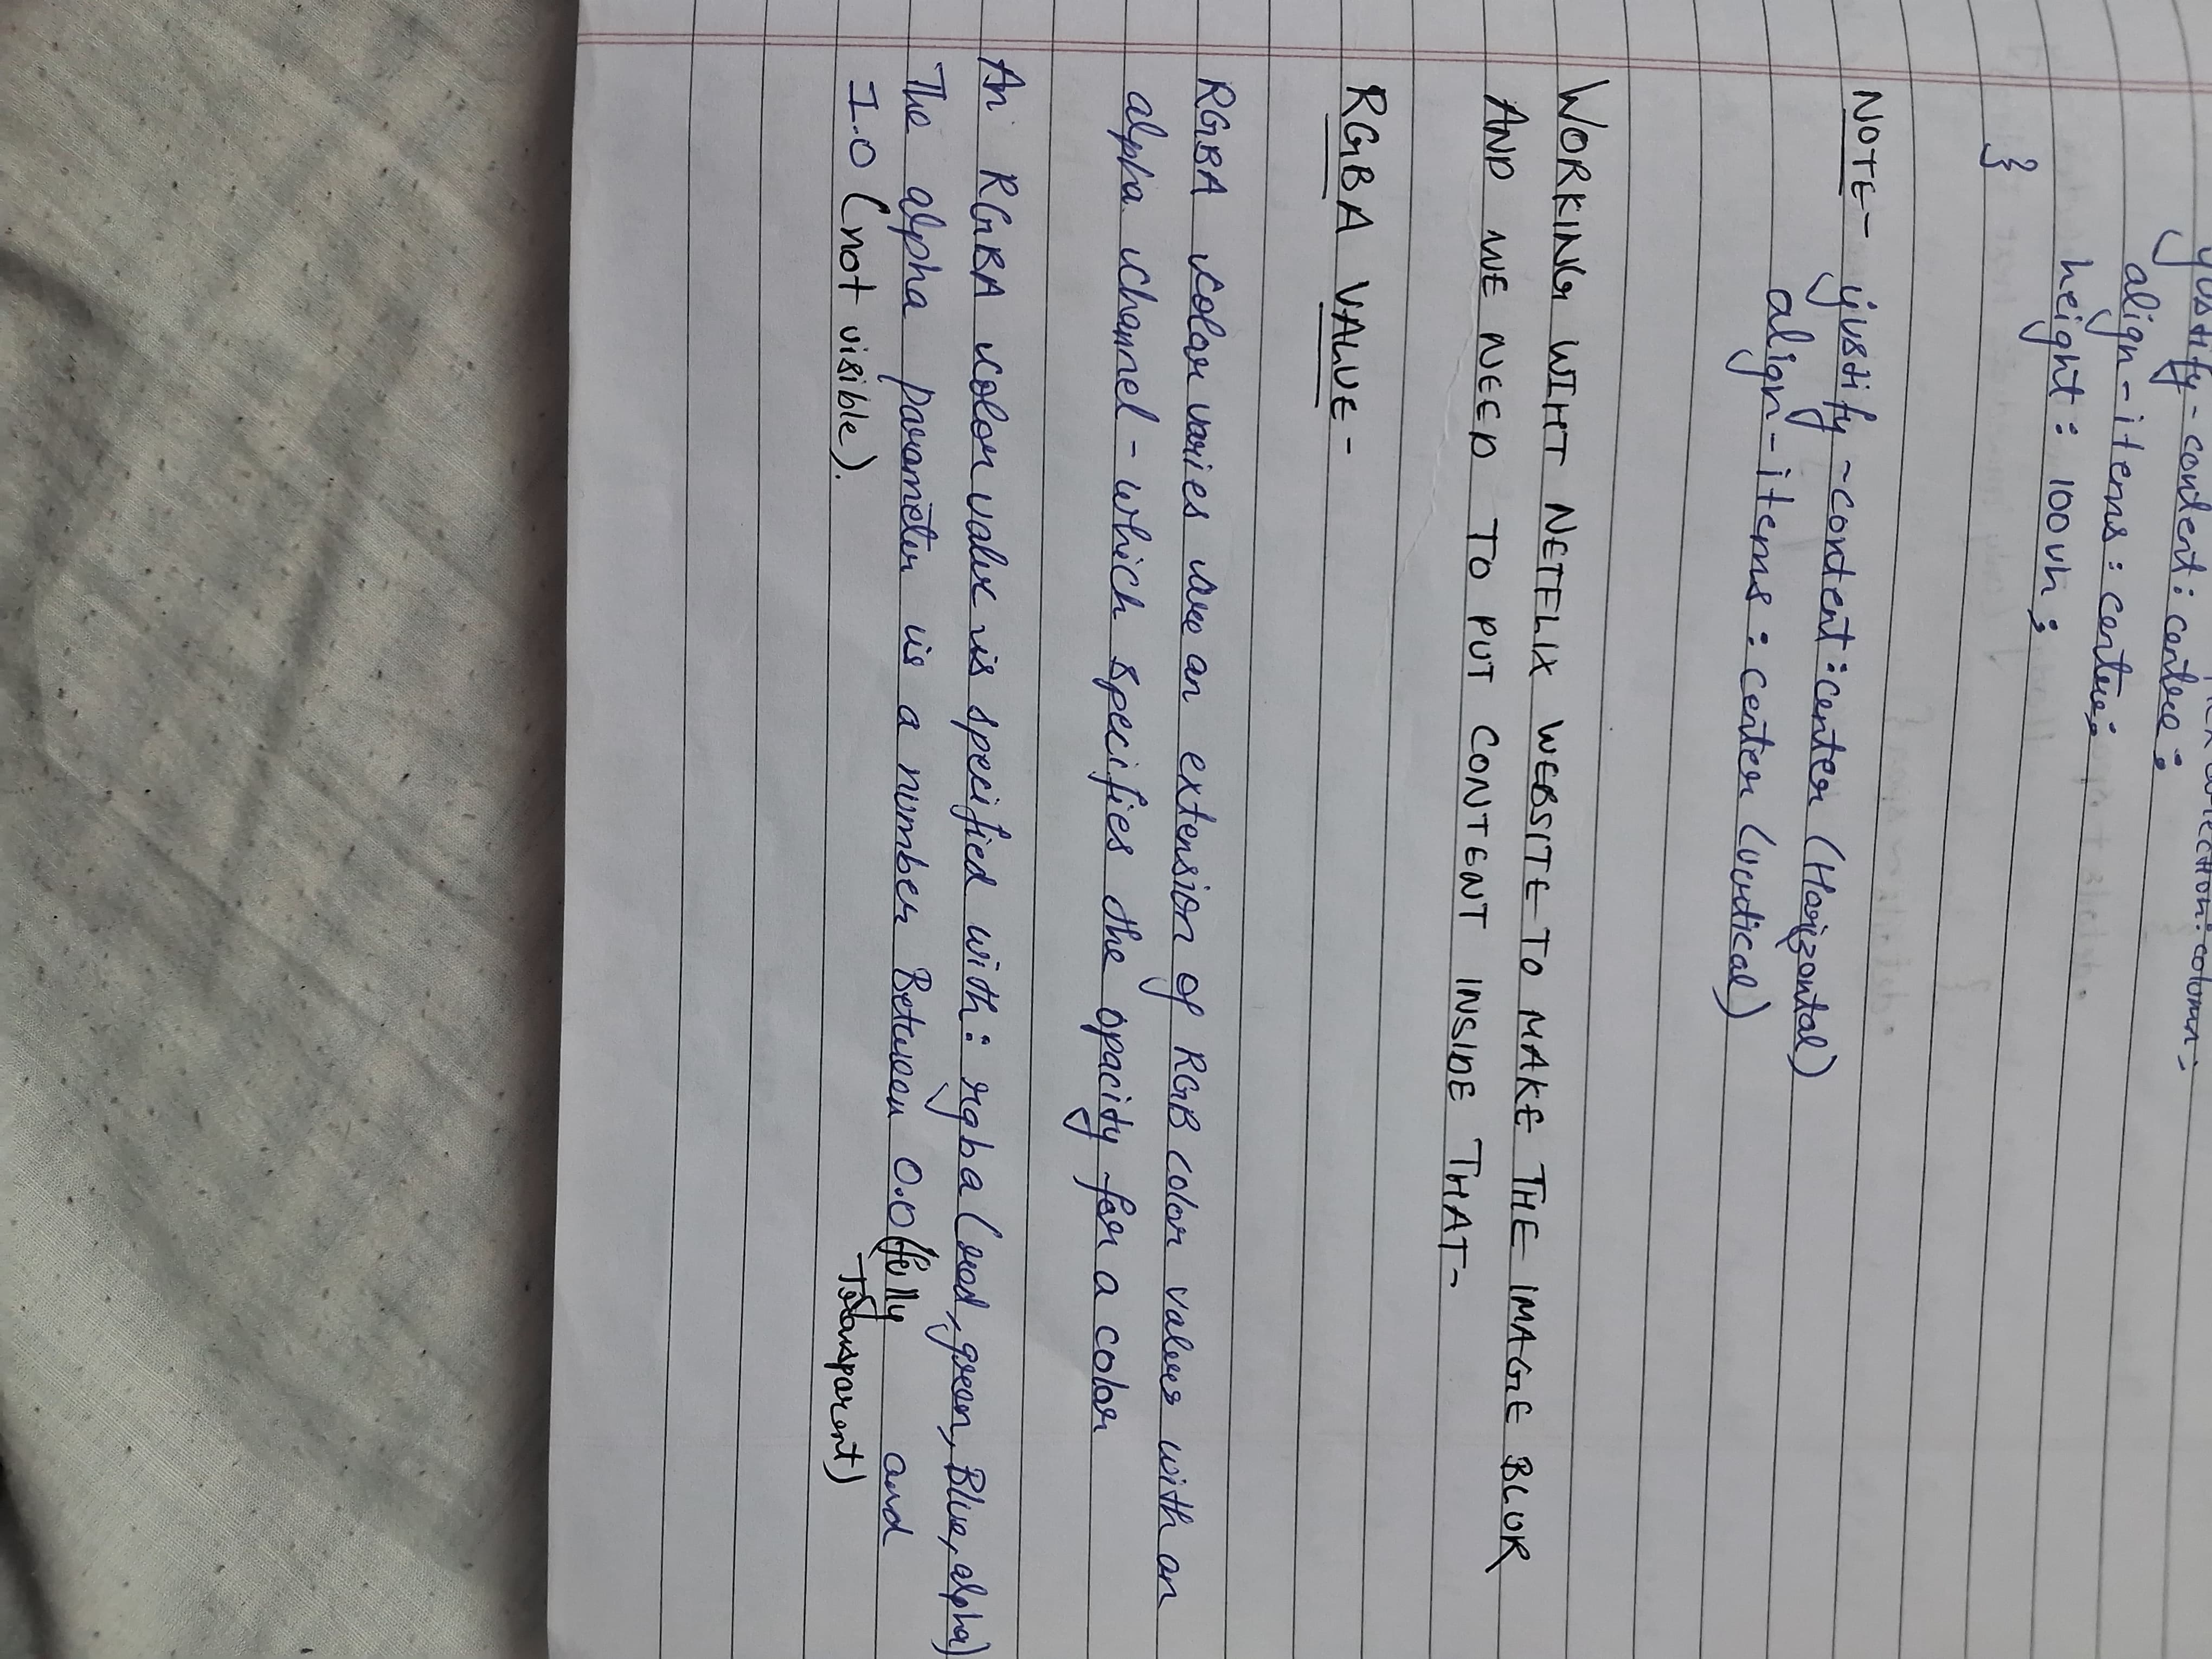 justify-content: centre;
align-items: centre;
height: 100vh;
}
NOTE- justify-content: center (Horizontal)
align-items: center (vertical)
WORKING WIHT NETELIX WEBSITE TO MAKE THE IMAGE BLUR
AND WE NEED TO PUT CONTENT INSIDE THAT-
RGBA VALUE-
RGBA color varies are an extension of RGB color values with an
alpha channel - which specifies the opacity for a color
An RGBA color value is specified with: rgba (red, green, Blue, alpha)
The alpha parameter is a number Between 0.0 (fully and
Transparent)
1.0 (not visible).